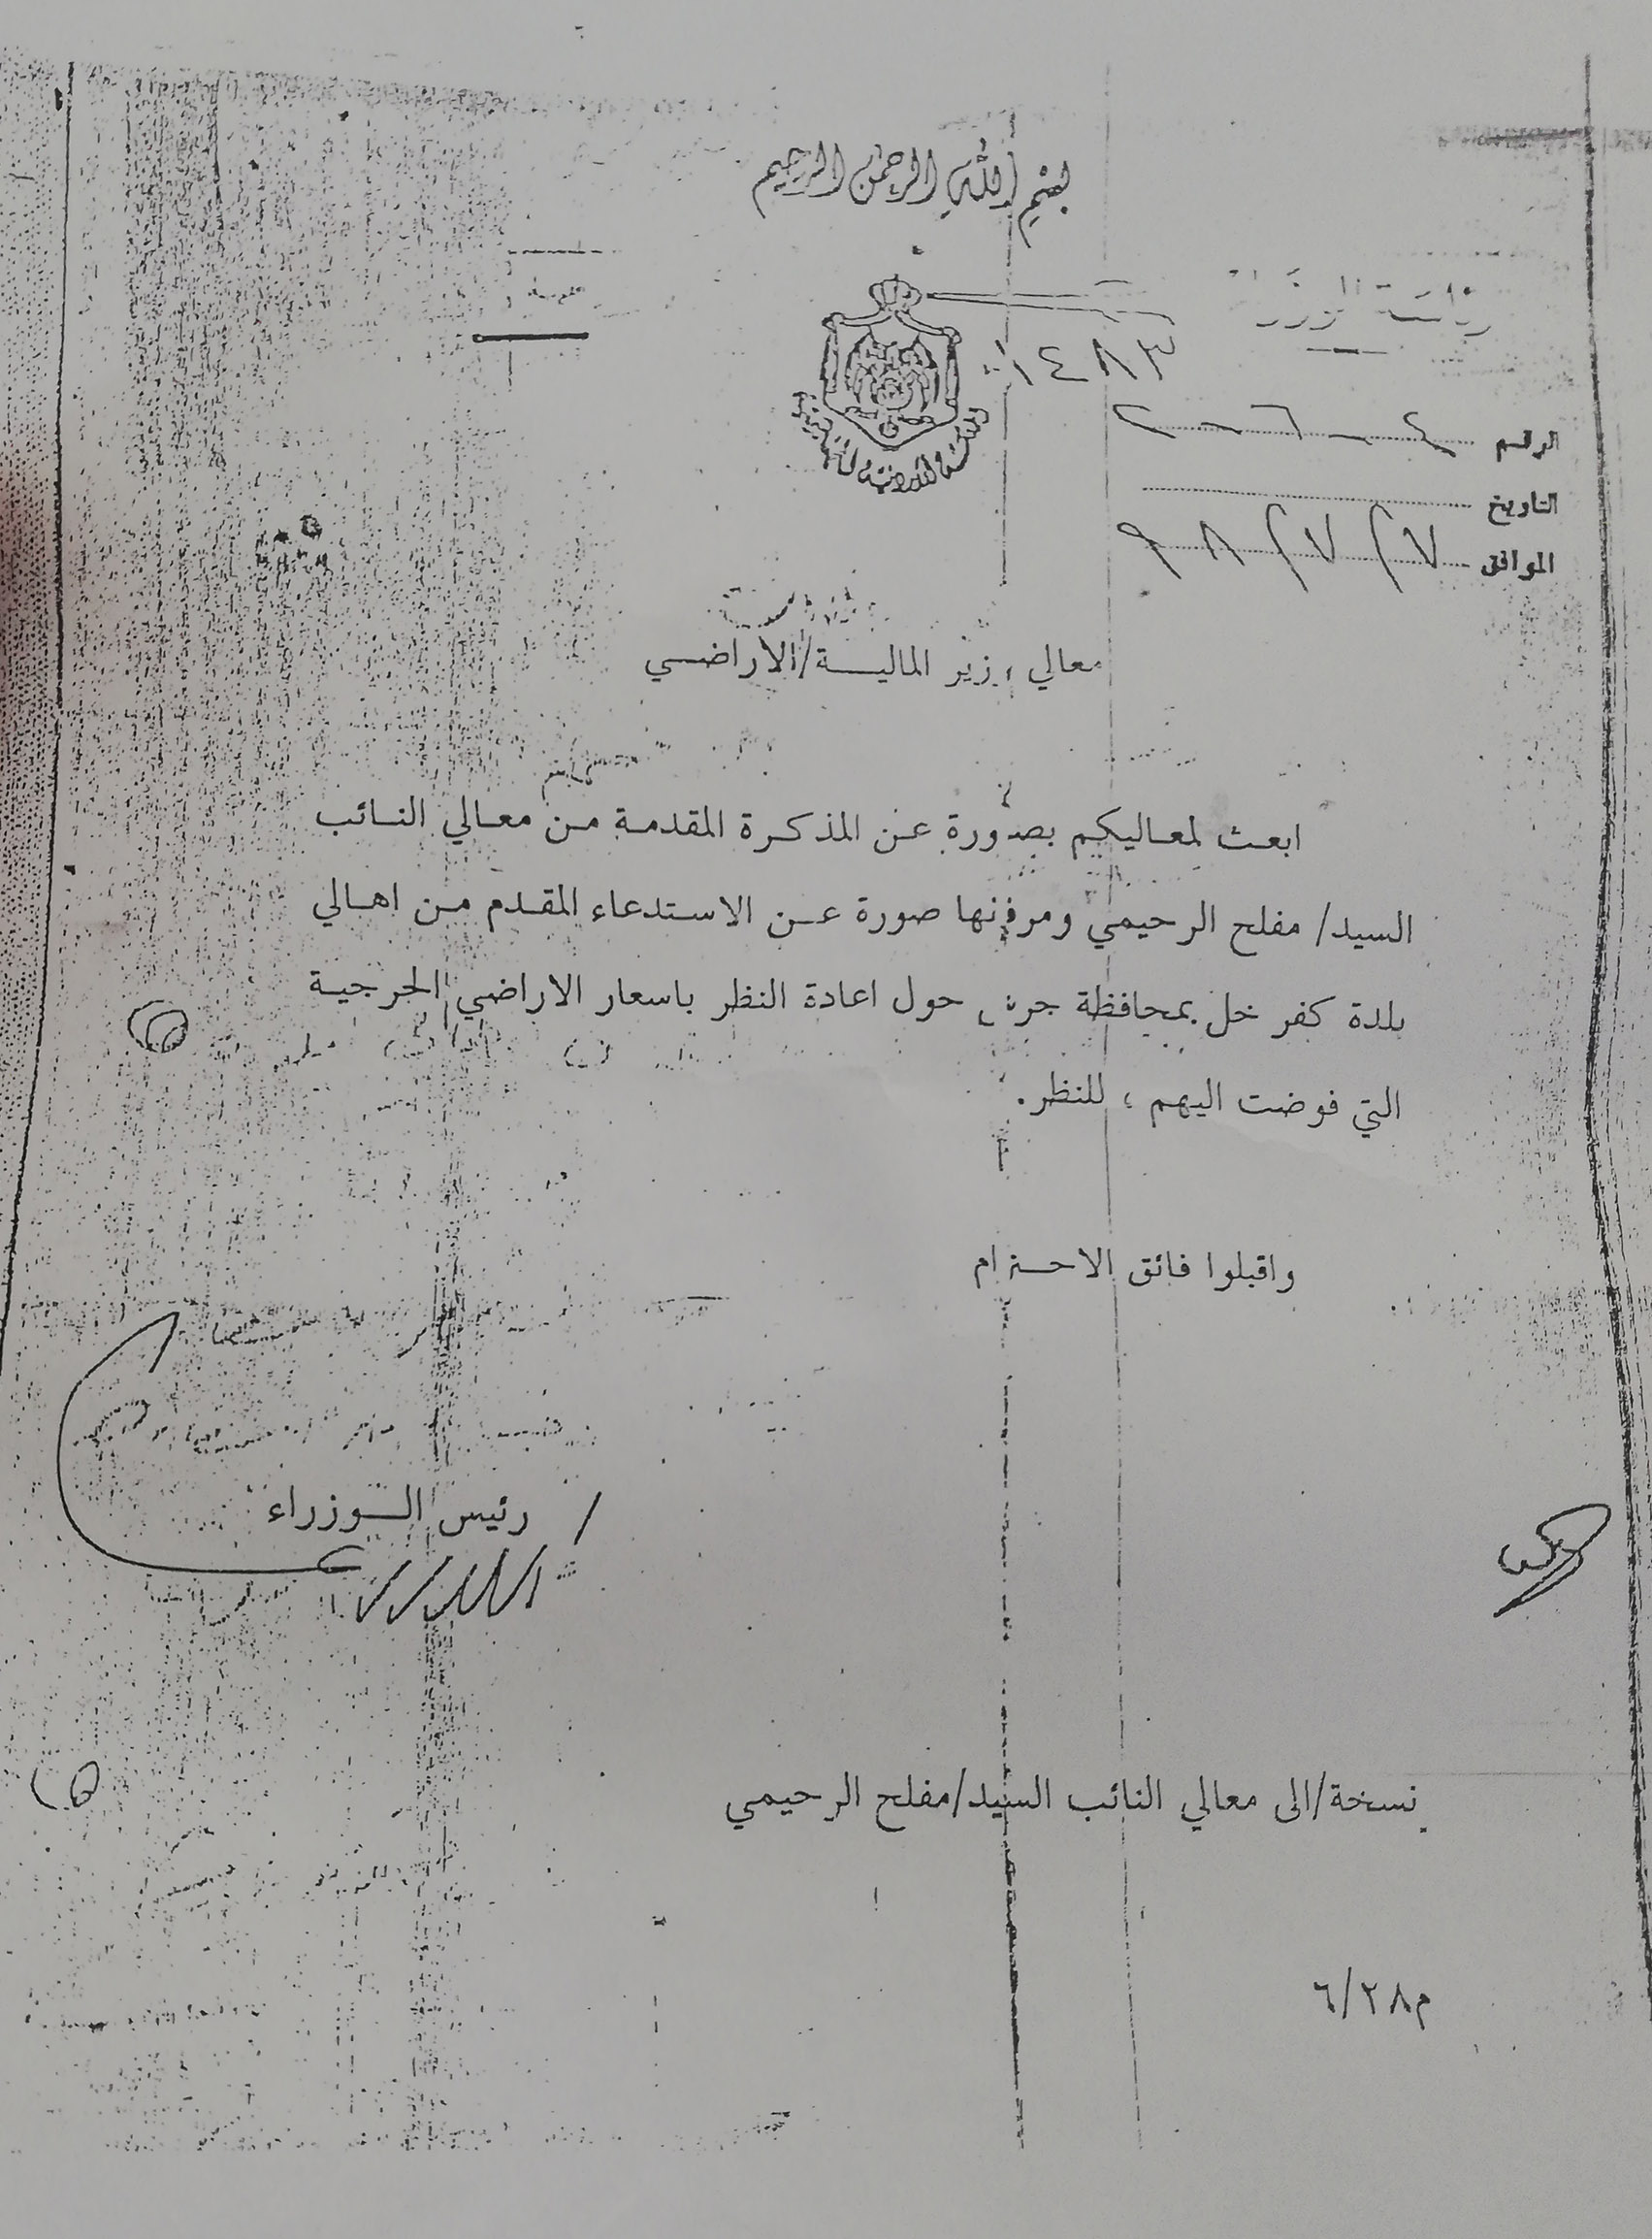 بسم الله الرحمن الرحيم
رئاسة الوزراء
المملكة الأردنية الهاشمية
١٤٨٣
الرقم ٤ - ٦ - ٢
التاريخ
الموافق ٩٨/٧/٧
معالي وزير الماليـــة/الاراضـــي
ابعث لمعاليكم بصورة عن المذكرة المقدمة من معالي النائب
السيد/ مفلح الرحيمي ومرفقها صورة عن الاستدعاء المقدم من اهالي
بلدة كفر خل بمحافظة جرش حول اعادة النظر باسعار الاراضي الحرجية
التي فوضت اليهم ، للنظر.
واقبلوا فائق الاحترام
رئيس الـــوزراء
نسخة/الى معالي النائب السيد/مفلح الرحيمي
م٦/٢٨